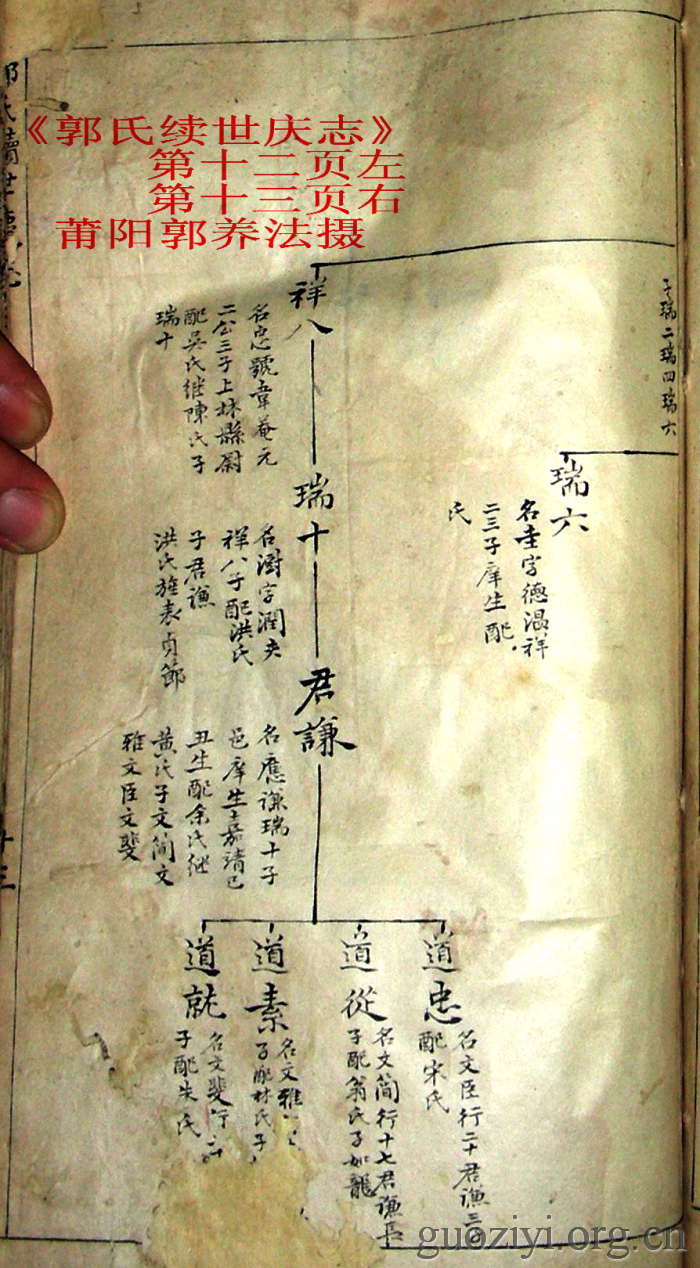 《郭氏续世庆志》
第十二页左
第十三页右
莆阳郭养法摄
子瑞二瑞四瑞六
瑞六
名圭字德温祥
二三子庠生配
氏
祥八
名忠號韋菴元
二公三子上林縣尉
配吴氏继陳氏子
瑞十
瑞十
名澍字潤夫
祥八子配洪氏
子君謙
洪氏旌表貞節
君謙
名應謙瑞十子
邑庠生嘉靖己
丑生配余氏继
黄氏子文简文
雅文臣文斐
道忠
名文臣行二十君謙三子
配宋氏
道從
名文简行十七君謙長
子配翁氏子如龍
道素
名文雅
子配林氏子
道就
名文斐行二
子配朱氏
郭氏續世
十三
guoziyi.org.cn